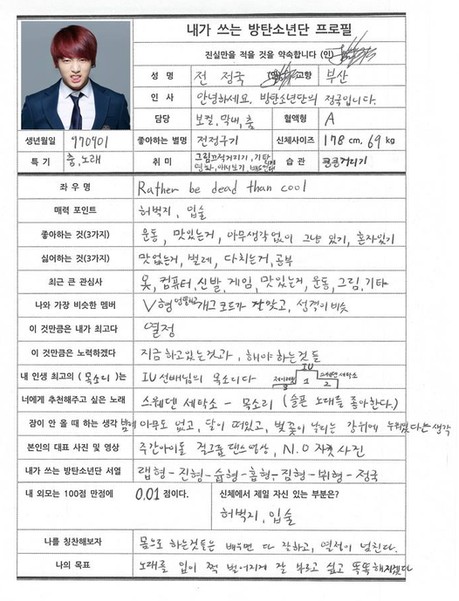 내가 쓰는 방탄소년단 프로필
진실만을 적을 것을 약속합니다 (인)
성 명 전 정국 고향 부산
인 사 안녕하세요. 방탄소년단의 정국입니다.
담당 보컬, 막내, 춤 혈액형 A
생년월일 좋아하는 별명 전정구기 신체사이즈 178 cm, 69 kg
970901
특 기 춤, 노래 취미 습 관 킁킁거리기
좌 우 명 Rather be dead than cool
매력 포인트 허벅지, 입술
좋아하는 것(3가지) 운동, 맛있는거, 아무생각없이 그냥 있기, 혼자있기
싫어하는 것(3가지) 맛없는거, 벌레, 다치는거, 공부
최근 큰 관심사 옷, 컴퓨터, 신발, 게임, 맛있는거, 운동, 그림, 기타
나와 가장 비슷한 멤버 V형 개그코드가 잘맞고, 성격이 비슷
이 것만큼은 내가 최고다 열정
이 것만큼은 노력하겠다 지금 하고있는것과, 해야 하는것들
내 인생 최고의 ( 목소리 )는 IU 선배님의 목소리다 IU 1 2 3
너에게 추천해주고 싶은 노래 스웨덴 세탁소 - 목소리 (슬픈 노래를 좋아한다.)
잠이 안 올 때 하는 생각 밤에 아무도 없고, 달이 떠있고, 벚꽃이 날리는 강위에 누워있다는 생각
본인의 대표 사진 및 영상 주간아이돌 걸그룹댄스영상, N.O 자켓사진
내가 쓰는 방탄소년단 서열 랩형-진형-슙형-홉형-짐형-뷔형-정국
내 외모는 100점 만점에 0.01 점이다. 신체에서 제일 자신 있는 부분은?
허벅지, 입술
나를 칭찬해보자 몸으로 하는것들은 배우면 다 잘하고, 열정이 넘친다.
나의 목표 노래를 입이 쩍 벌어지게 잘 부르고 싶고 똑똑해지겠다